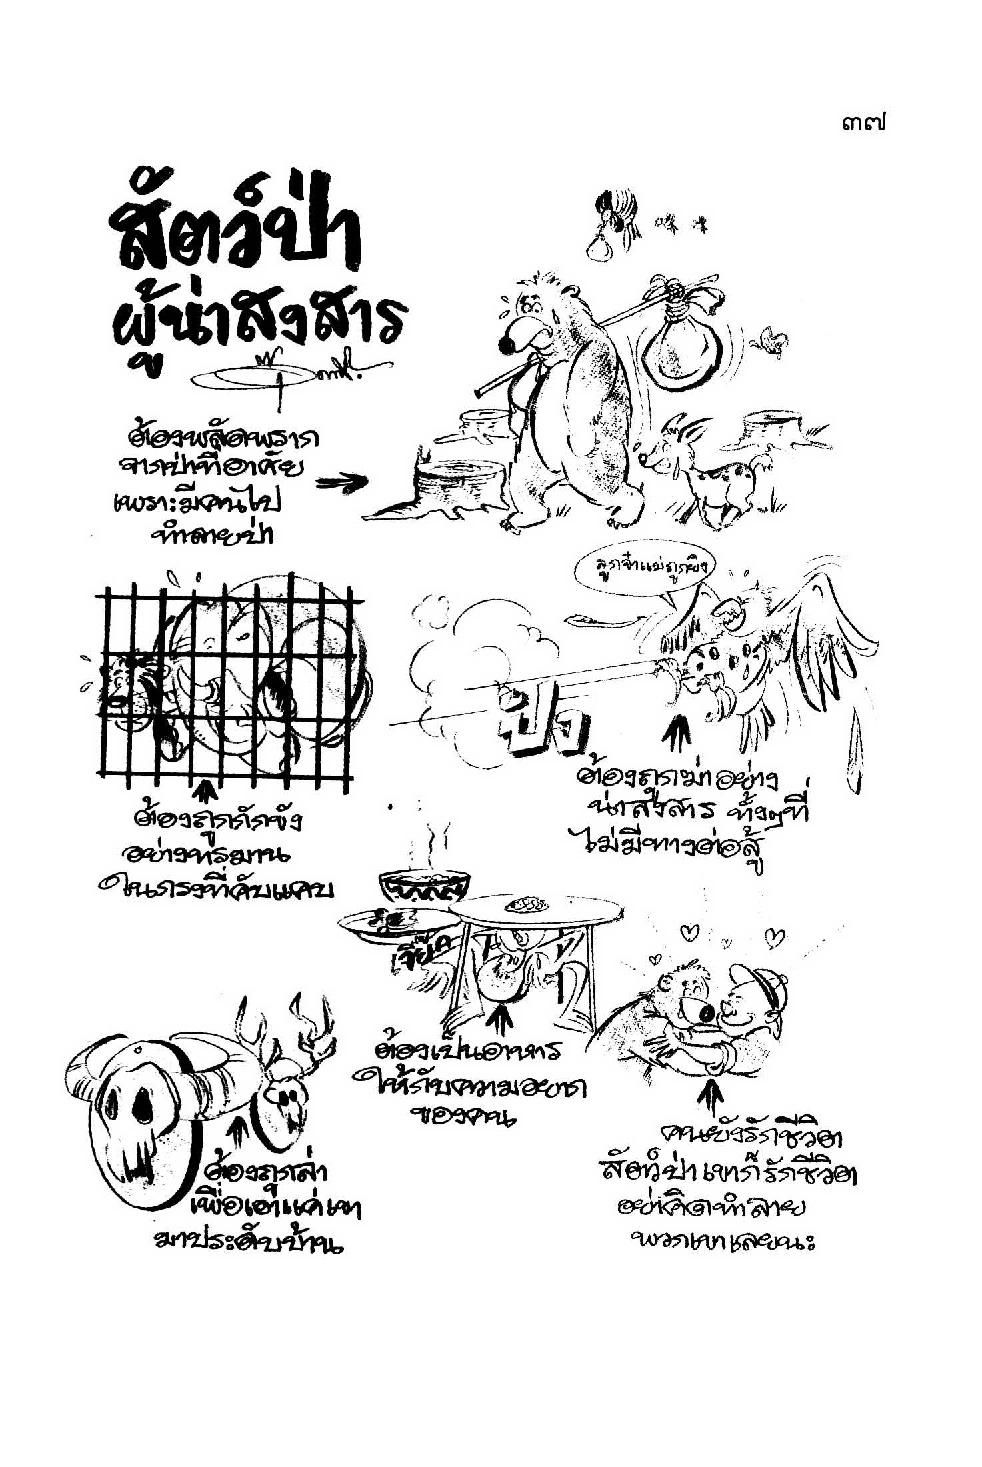 ๓๗
สัตว์ป่า
ผู้น่าสงสาร
ต้องพลัดพราก
จากป่าที่อาศัย
เพราะมีคนไป
ทำลายป่า
ลูกจ๋าแม่ถูกยิง
ปัง
ต้องถูกฆ่าอย่าง
น่าสงสาร ทั้งๆที่
ไม่มีทางต่อสู้
ต้องถูกกักขัง
อย่างทรมาน
ในกรงที่คับแคบ
เจี๊ยก
ต้องเป็นอาหาร
ให้กับความอยาก
ของคน
ต้องถูกล่า
เพื่อเอาแค่เขา
มาประดับบ้าน
คนยังรักชีวิต
สัตว์ป่าเขาก็รักชีวิต
อย่าคิดทำลาย
พวกเขาเลยนะ